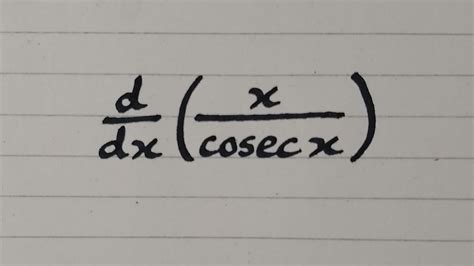 d/dx (x/cosec x)